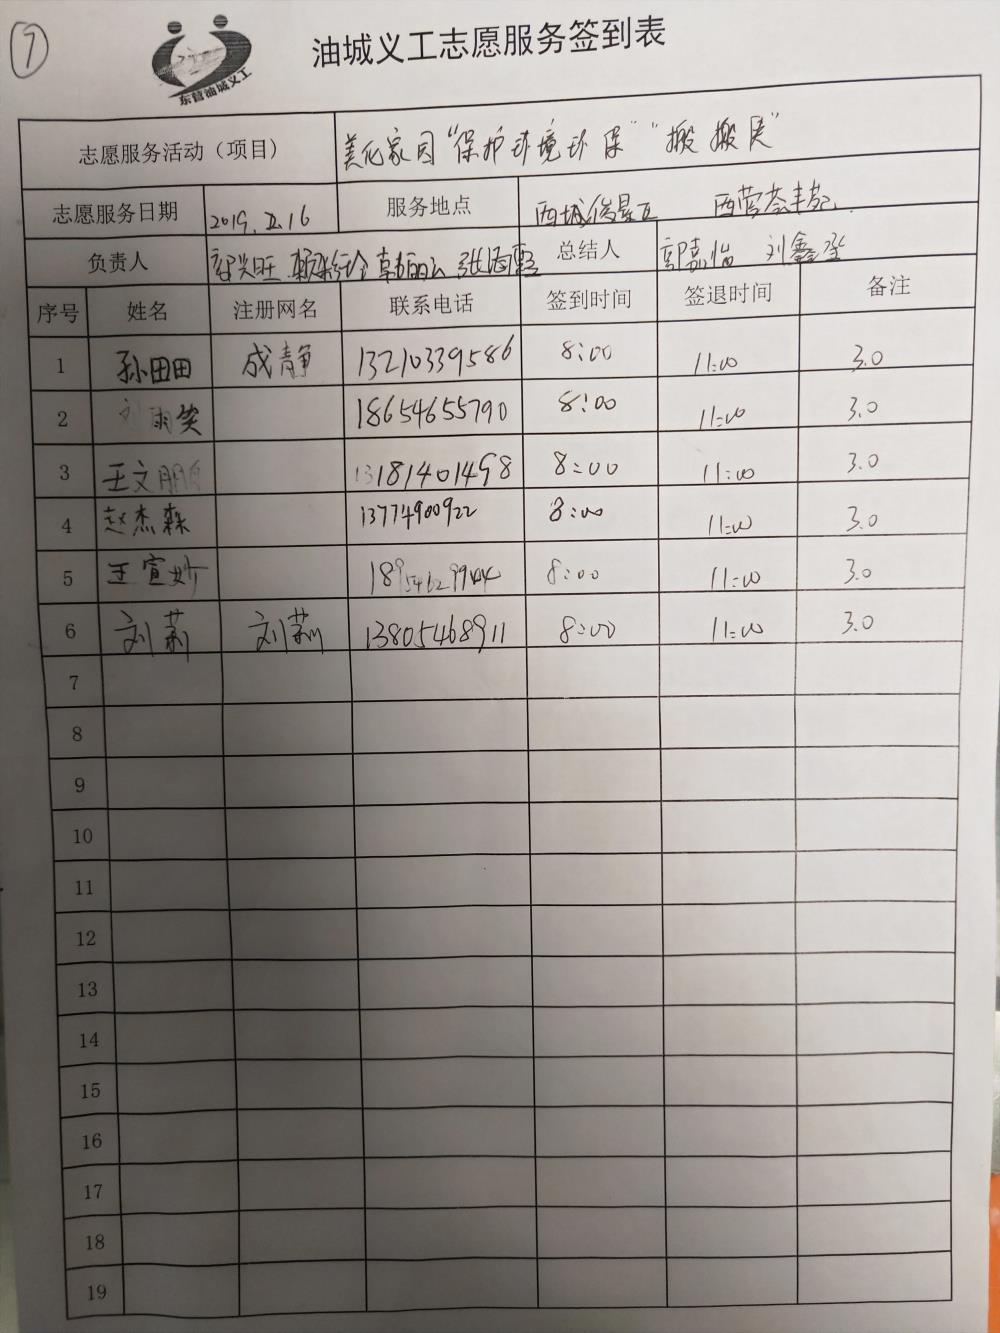 7
东营油城义工
油城义工志愿服务签到表
志愿服务活动（项目） 美化家园“保护环境环保”“搬搬展”
志愿服务日期 2019. 2.16 服务地点 西城
负责人 总结人 郭嘉怡 刘鑫
序号 姓名 注册网名 联系电话 签到时间 签退时间 备注
1 孙田田 成静 13210339586 8:00 11:00 3.0
2 刘雨笑 18654655790 8:00 11:00 3.0
3 王文朋 13181401498 8:00 11:00 3.0
4 赵杰森 13774900922 8:00 11:00 3.0
5 王宣妙 18954629944 8:00 11:00 3.0
6 刘莉 刘莉 13805468911 8:00 11:00 3.0
7
8
9
10
11
12
13
14
15
16
17
18
19